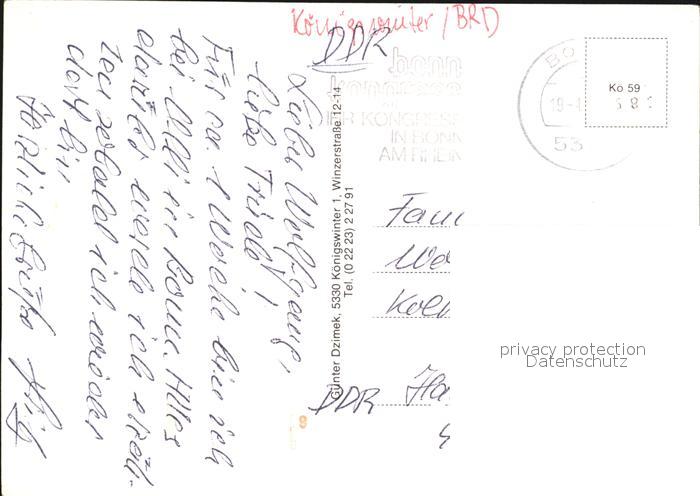 Königswinter / BRD
DDR
bonn
kongress
DER KONGRESS
IN BONN
AM RHEIN
BO
19.-
53
Ko 59
Lieber Wolfgang,
liebe Trudel!
Für ca. 1 Woche bin ich
bei Ulli in Bonn. Alles
andere werde ich erzäh-
len sobald ich wieder
dort bin
Herzliche Grüße
Günter Dzimek, 5330 Königswinter 1, Winzerstraße 12-14
Tel. (0 22 23) 2 27 91
Fam
DDR
Ha
privacy protection
Datenschutz